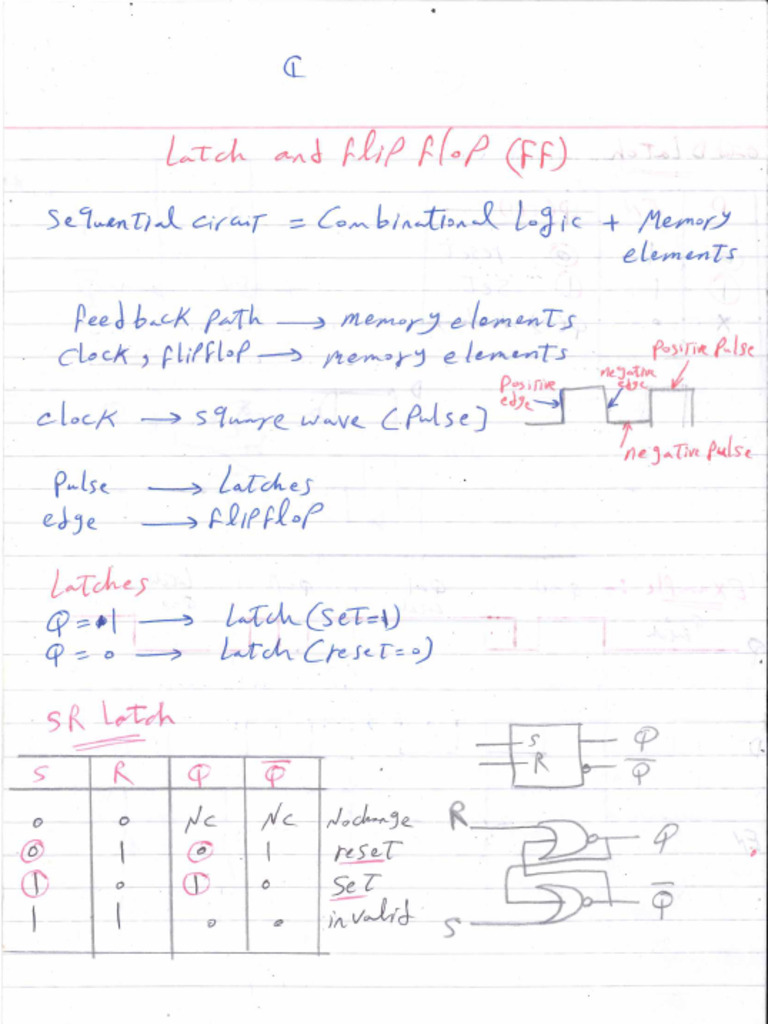 Latch and flip flop (FF)
Sequential circuit = Combinational Logic + Memory
elements
feedback path → memory elements
clock, flipflop → memory elements
positive pulse
negative
edge
Positive
edge
clock → square wave (Pulse)
negative pulse
Pulse → Latches
edge → flipflop
Latches
Q = 1 → Latch (set=1)
Q = 0 → Latch (reset=0)
SR Latch
S R Q Q̅
0 0 NC NC No change
0 1 0 1 reset
1 0 1 0 set
1 1 0 0 invalid
S Q
R Q̅
R Q
S Q̅